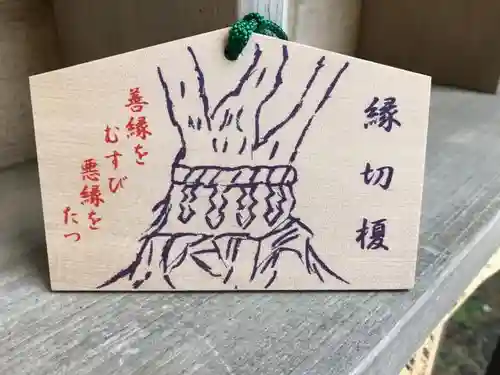 縁切榎
善縁を
むすび
悪縁を
たつ